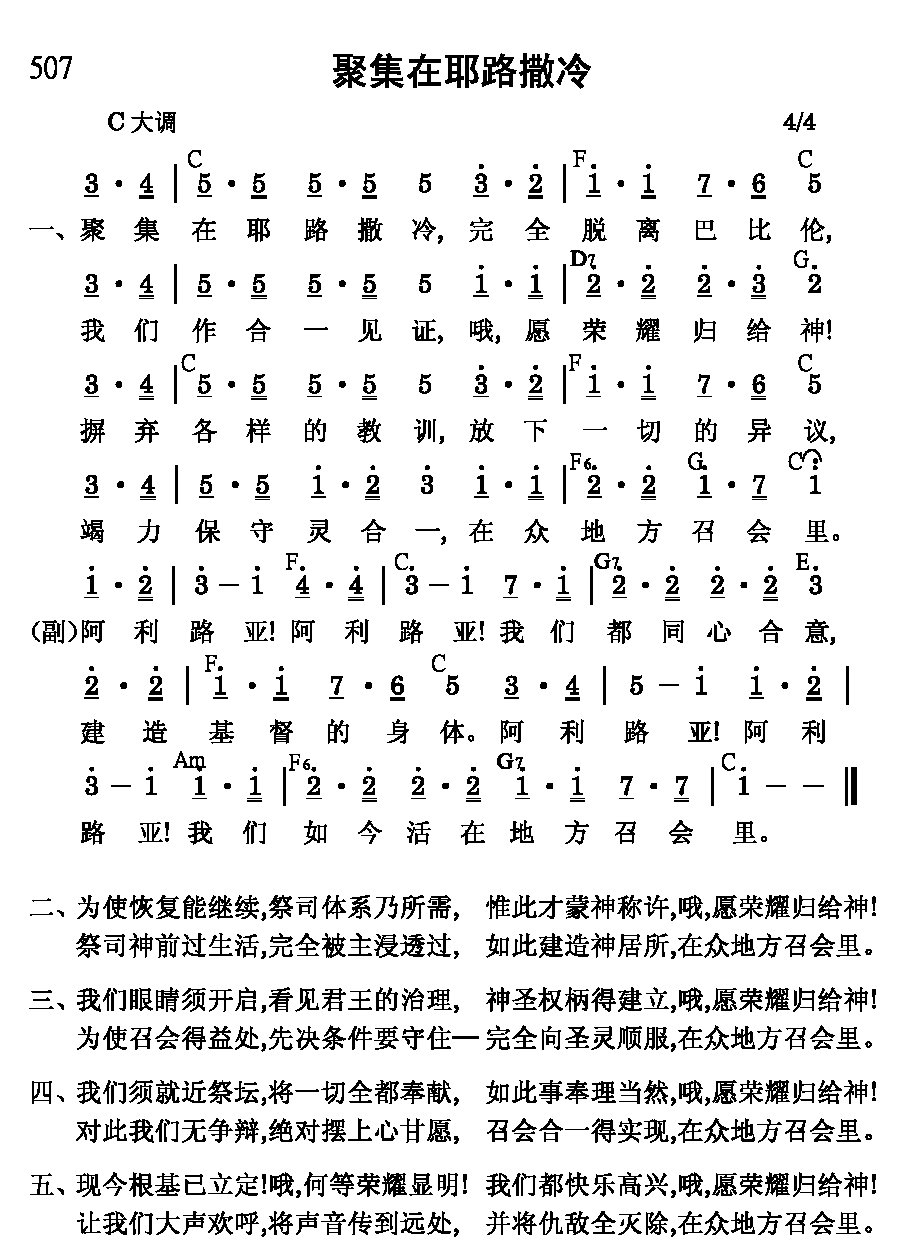 507 聚集在耶路撒冷
C 大调 4/4
C F C
3 · 4 | 5 · 5 5 · 5 5 3 · 2 | 1 · 1 7 · 6 5
一、聚 集 在 耶 路 撒 冷, 完 全 脱 离 巴 比 伦,
D7 G
3 · 4 | 5 · 5 5 · 5 5 1 · 1 | 2 · 2 2 · 3 2
我 们 作 合 一 见 证, 哦, 愿 荣 耀 归 给 神!
C F C
3 · 4 | 5 · 5 5 · 5 5 3 · 2 | 1 · 1 7 · 6 5
摒 弃 各 样 的 教 训, 放 下 一 切 的 异 议,
F6 G C
3 · 4 | 5 · 5 1 · 2 3 1 · 1 | 2 · 2 1 · 7 1
竭 力 保 守 灵 合 一, 在 众 地 方 召 会 里。
F C G7 E
1 · 2 | 3 – 1 4 · 4 | 3 – 1 7 · 1 | 2 · 2 2 · 2 3
(副)阿 利 路 亚! 阿 利 路 亚! 我 们 都 同 心 合 意,
F C
2 · 2 | 1 · 1 7 · 6 5 3 · 4 | 5 – 1 1 · 2 |
建 造 基 督 的 身 体。 阿 利 路 亚! 阿 利
Am F6 G7 C
3 – 1 1 · 1 | 2 · 2 2 · 2 1 · 1 7 · 7 | 1 – – ‖
路 亚! 我 们 如 今 活 在 地 方 召 会 里。
二、为使恢复能继续,祭司体系乃所需, 惟此才蒙神称许,哦,愿荣耀归给神!
祭司神前过生活,完全被主浸透过, 如此建造神居所,在众地方召会里。
三、我们眼睛须开启,看见君王的治理, 神圣权柄得建立,哦,愿荣耀归给神!
为使召会得益处,先决条件要守住—完全向圣灵顺服,在众地方召会里。
四、我们须就近祭坛,将一切全都奉献, 如此事奉理当然,哦,愿荣耀归给神!
对此我们无争辩,绝对摆上心甘愿, 召会合一得实现,在众地方召会里。
五、现今根基已立定!哦,何等荣耀显明! 我们都快乐高兴,哦,愿荣耀归给神!
让我们大声欢呼,将声音传到远处, 并将仇敌全灭除,在众地方召会里。